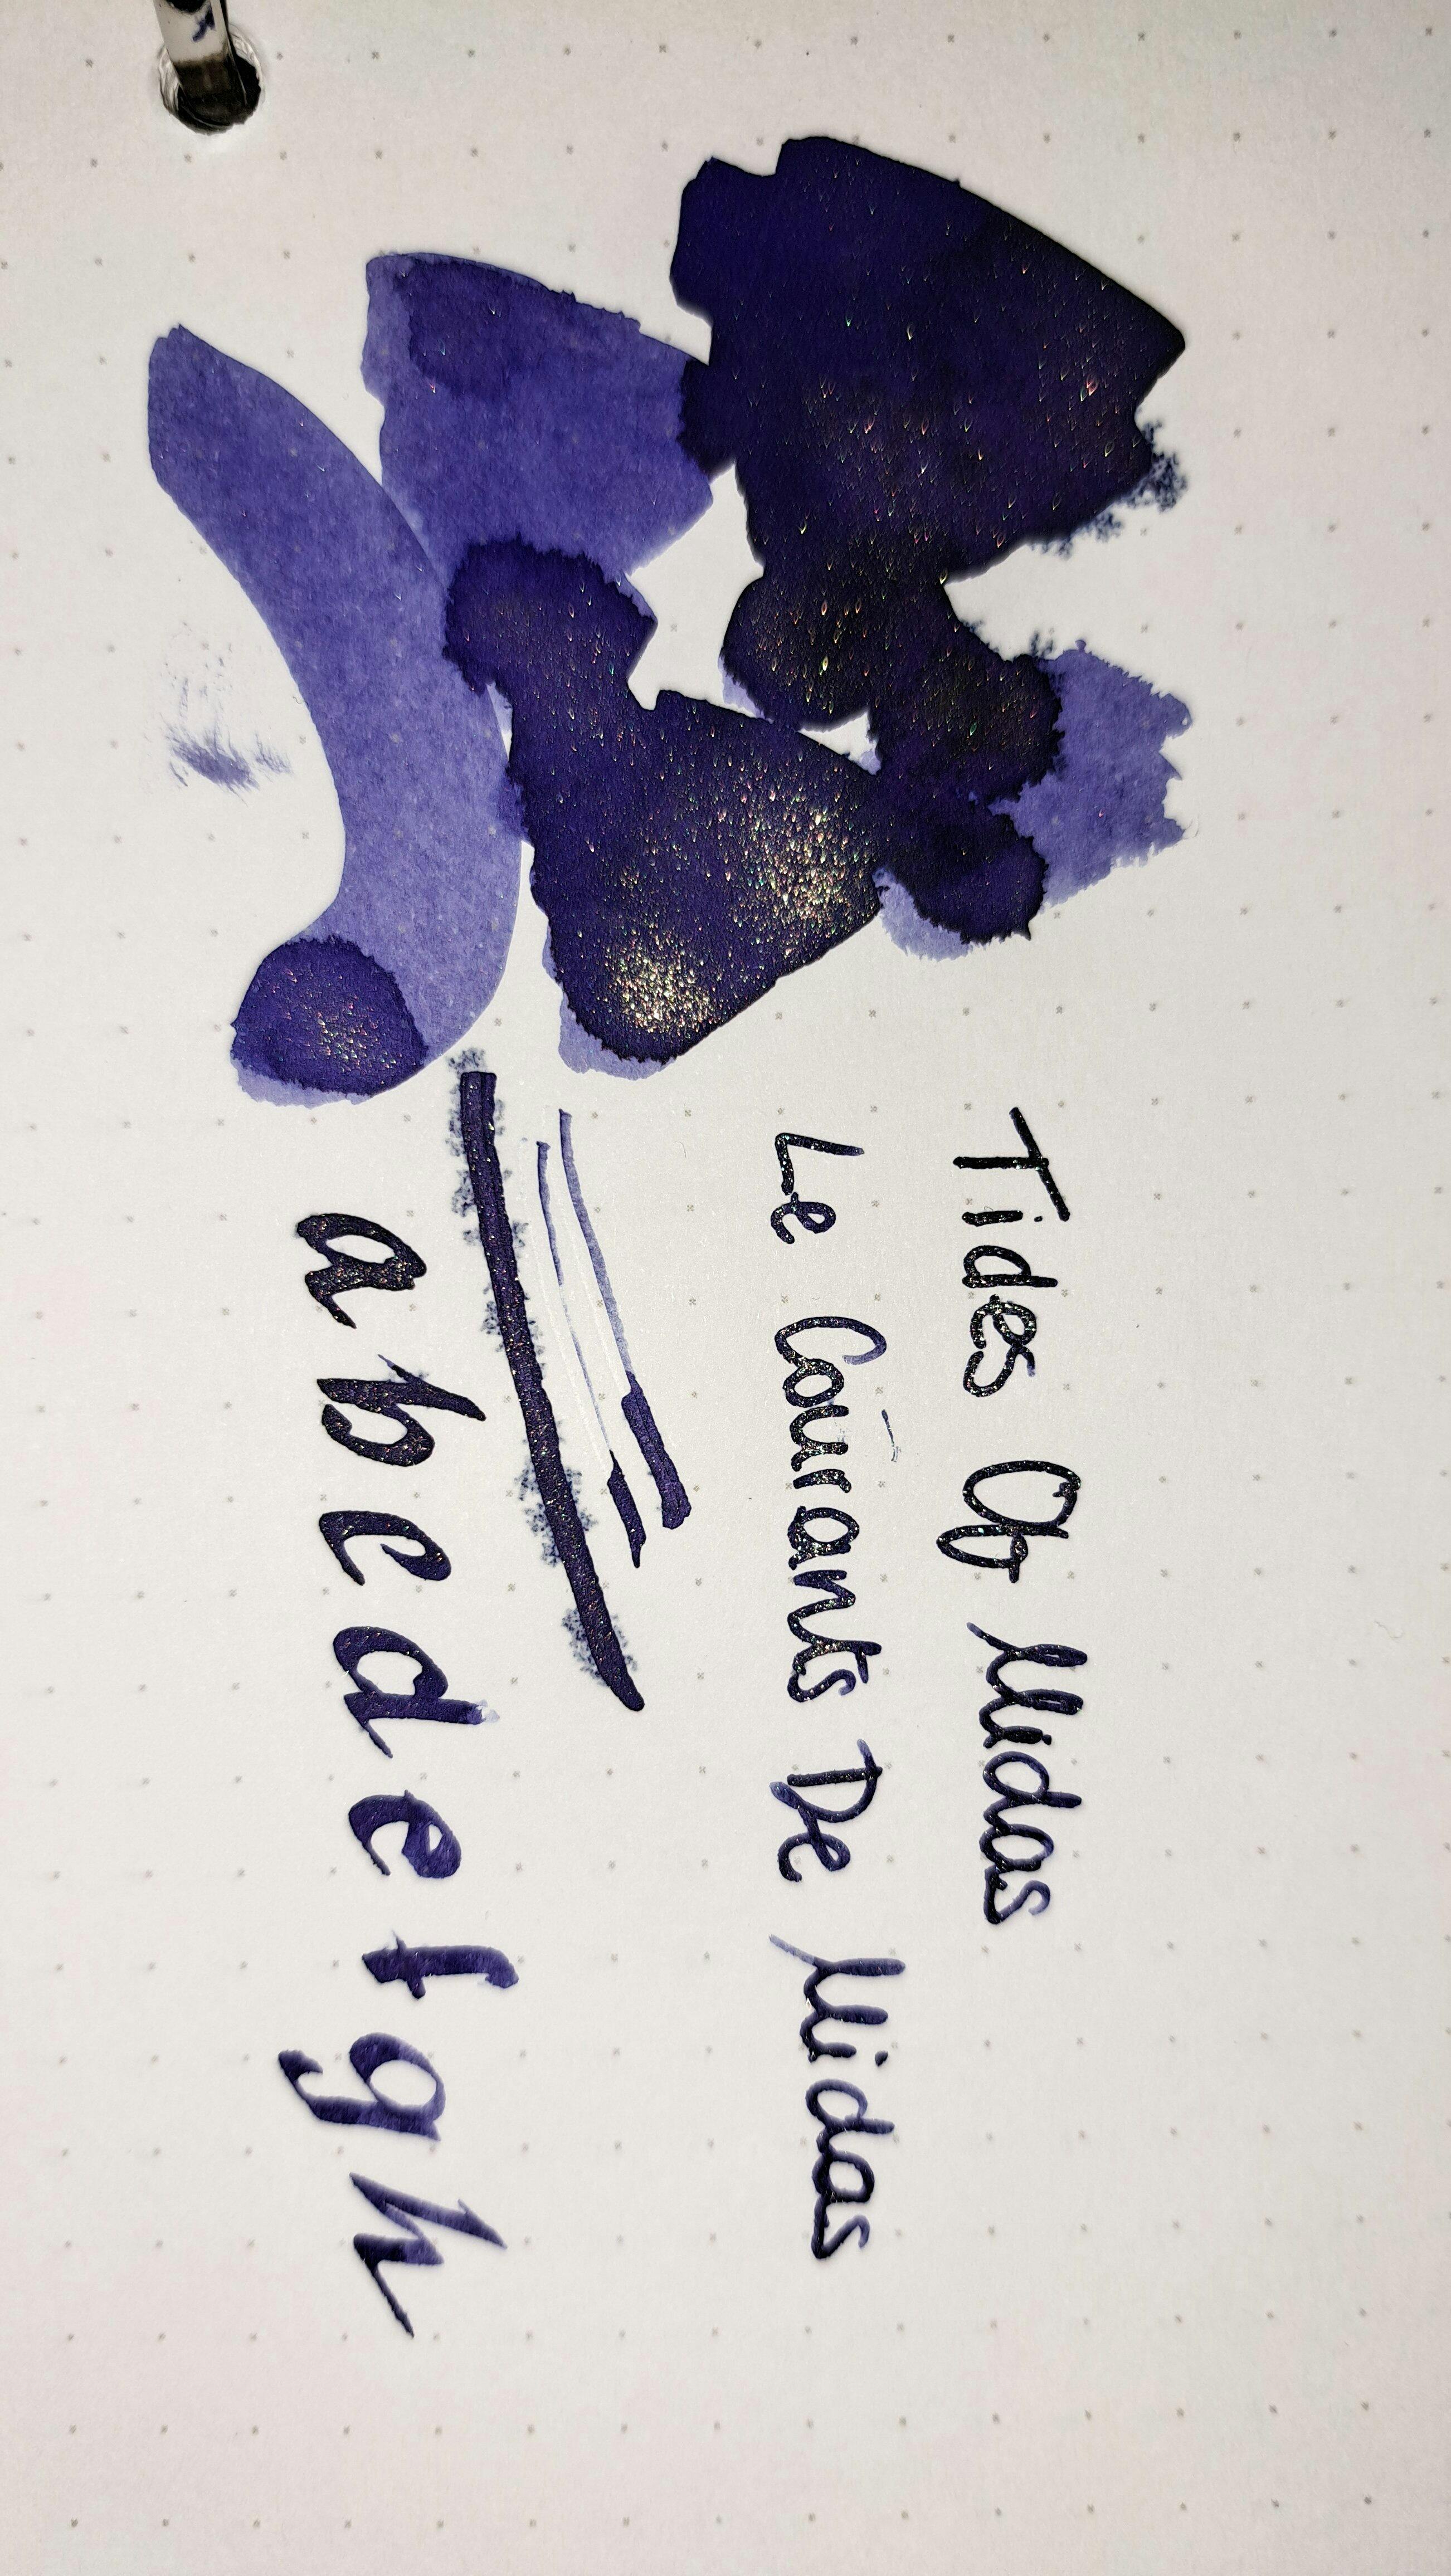 Tides Of Midas
Le Courants De Midas
a b c d e f g h